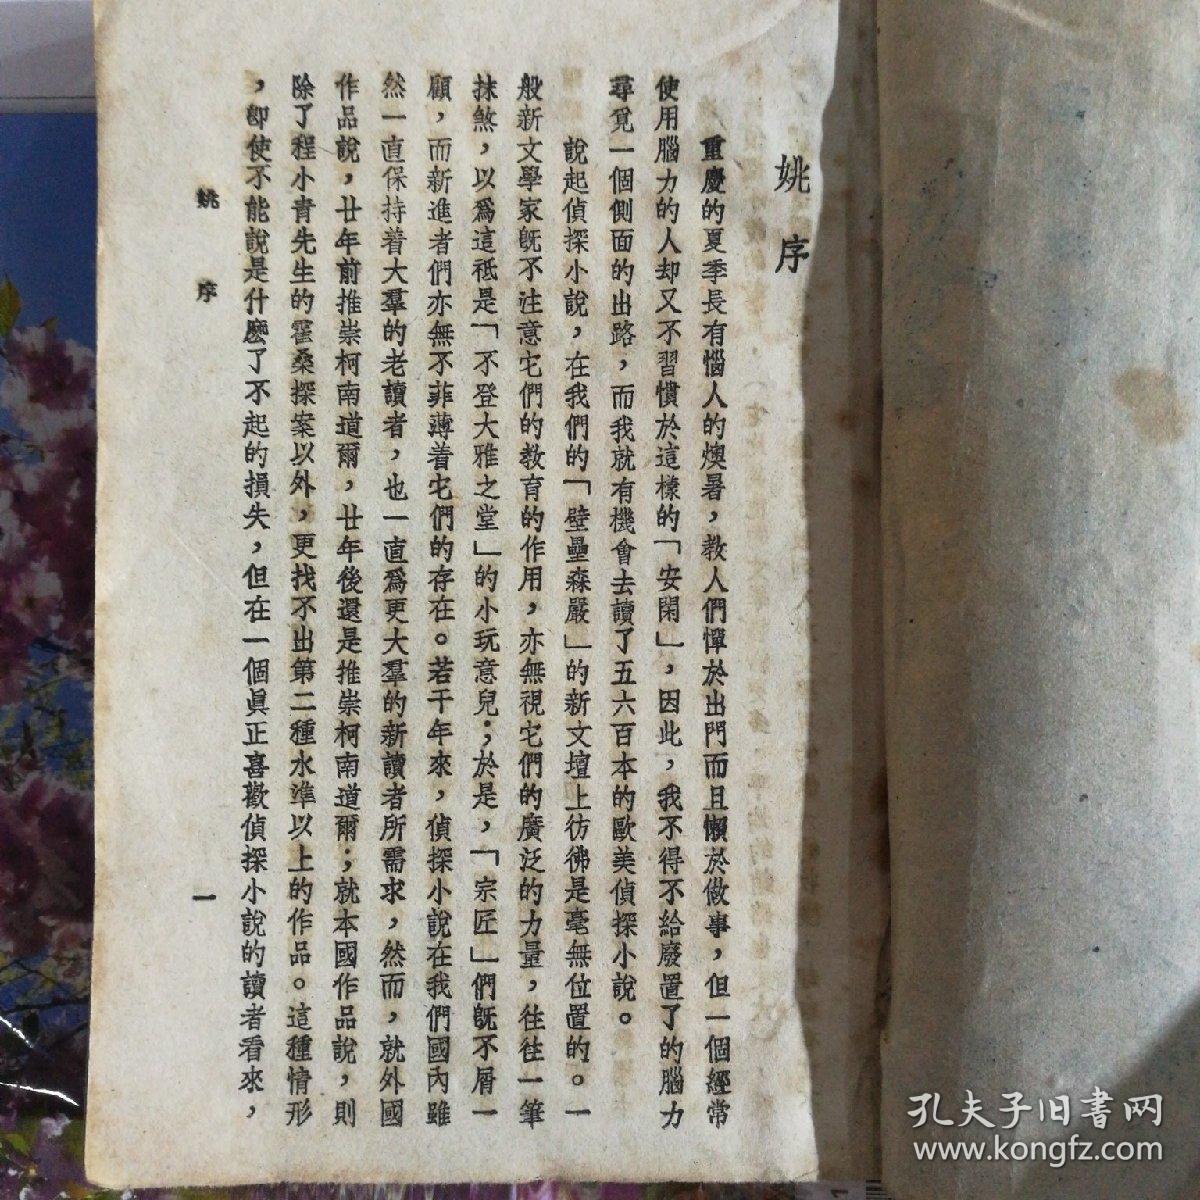 姚序
重慶的夏季長有惱人的燠暑，教人們憚於出門而且懶於做事，但一個經常
使用腦力的人却又不習慣於這樣的「安閑」，因此，我不得不給廢置了的腦力
尋覓一個側面的出路，而我就有機會去讀了五六百本的歐美偵探小說。
說起偵探小說，在我們的「壁壘森嚴」的新文壇上彷彿是毫無位置的。一
般新文學家既不注意它們的教育的作用，亦無視它們的廣泛的力量，往往一筆
抹煞，以爲這祗是「不登大雅之堂」的小玩意兒；於是，「宗匠」們既不屑一
顧，而新進者們亦無不菲薄着它們的存在。若干年來，偵探小說在我們國內雖
然一直保持着大羣的老讀者，也一直爲更大羣的新讀者所需求，然而，就外國
作品說，廿年前推崇柯南道爾，廿年後還是推崇柯南道爾；就本國作品說，則
除了程小青先生的霍桑探案以外，更找不出第二種水準以上的作品。這種情形
，卽使不能說是什麽了不起的損失，但在一個眞正喜歡偵探小說的讀者看來，
姚序
一
孔夫子旧書网
www.kongfz.com